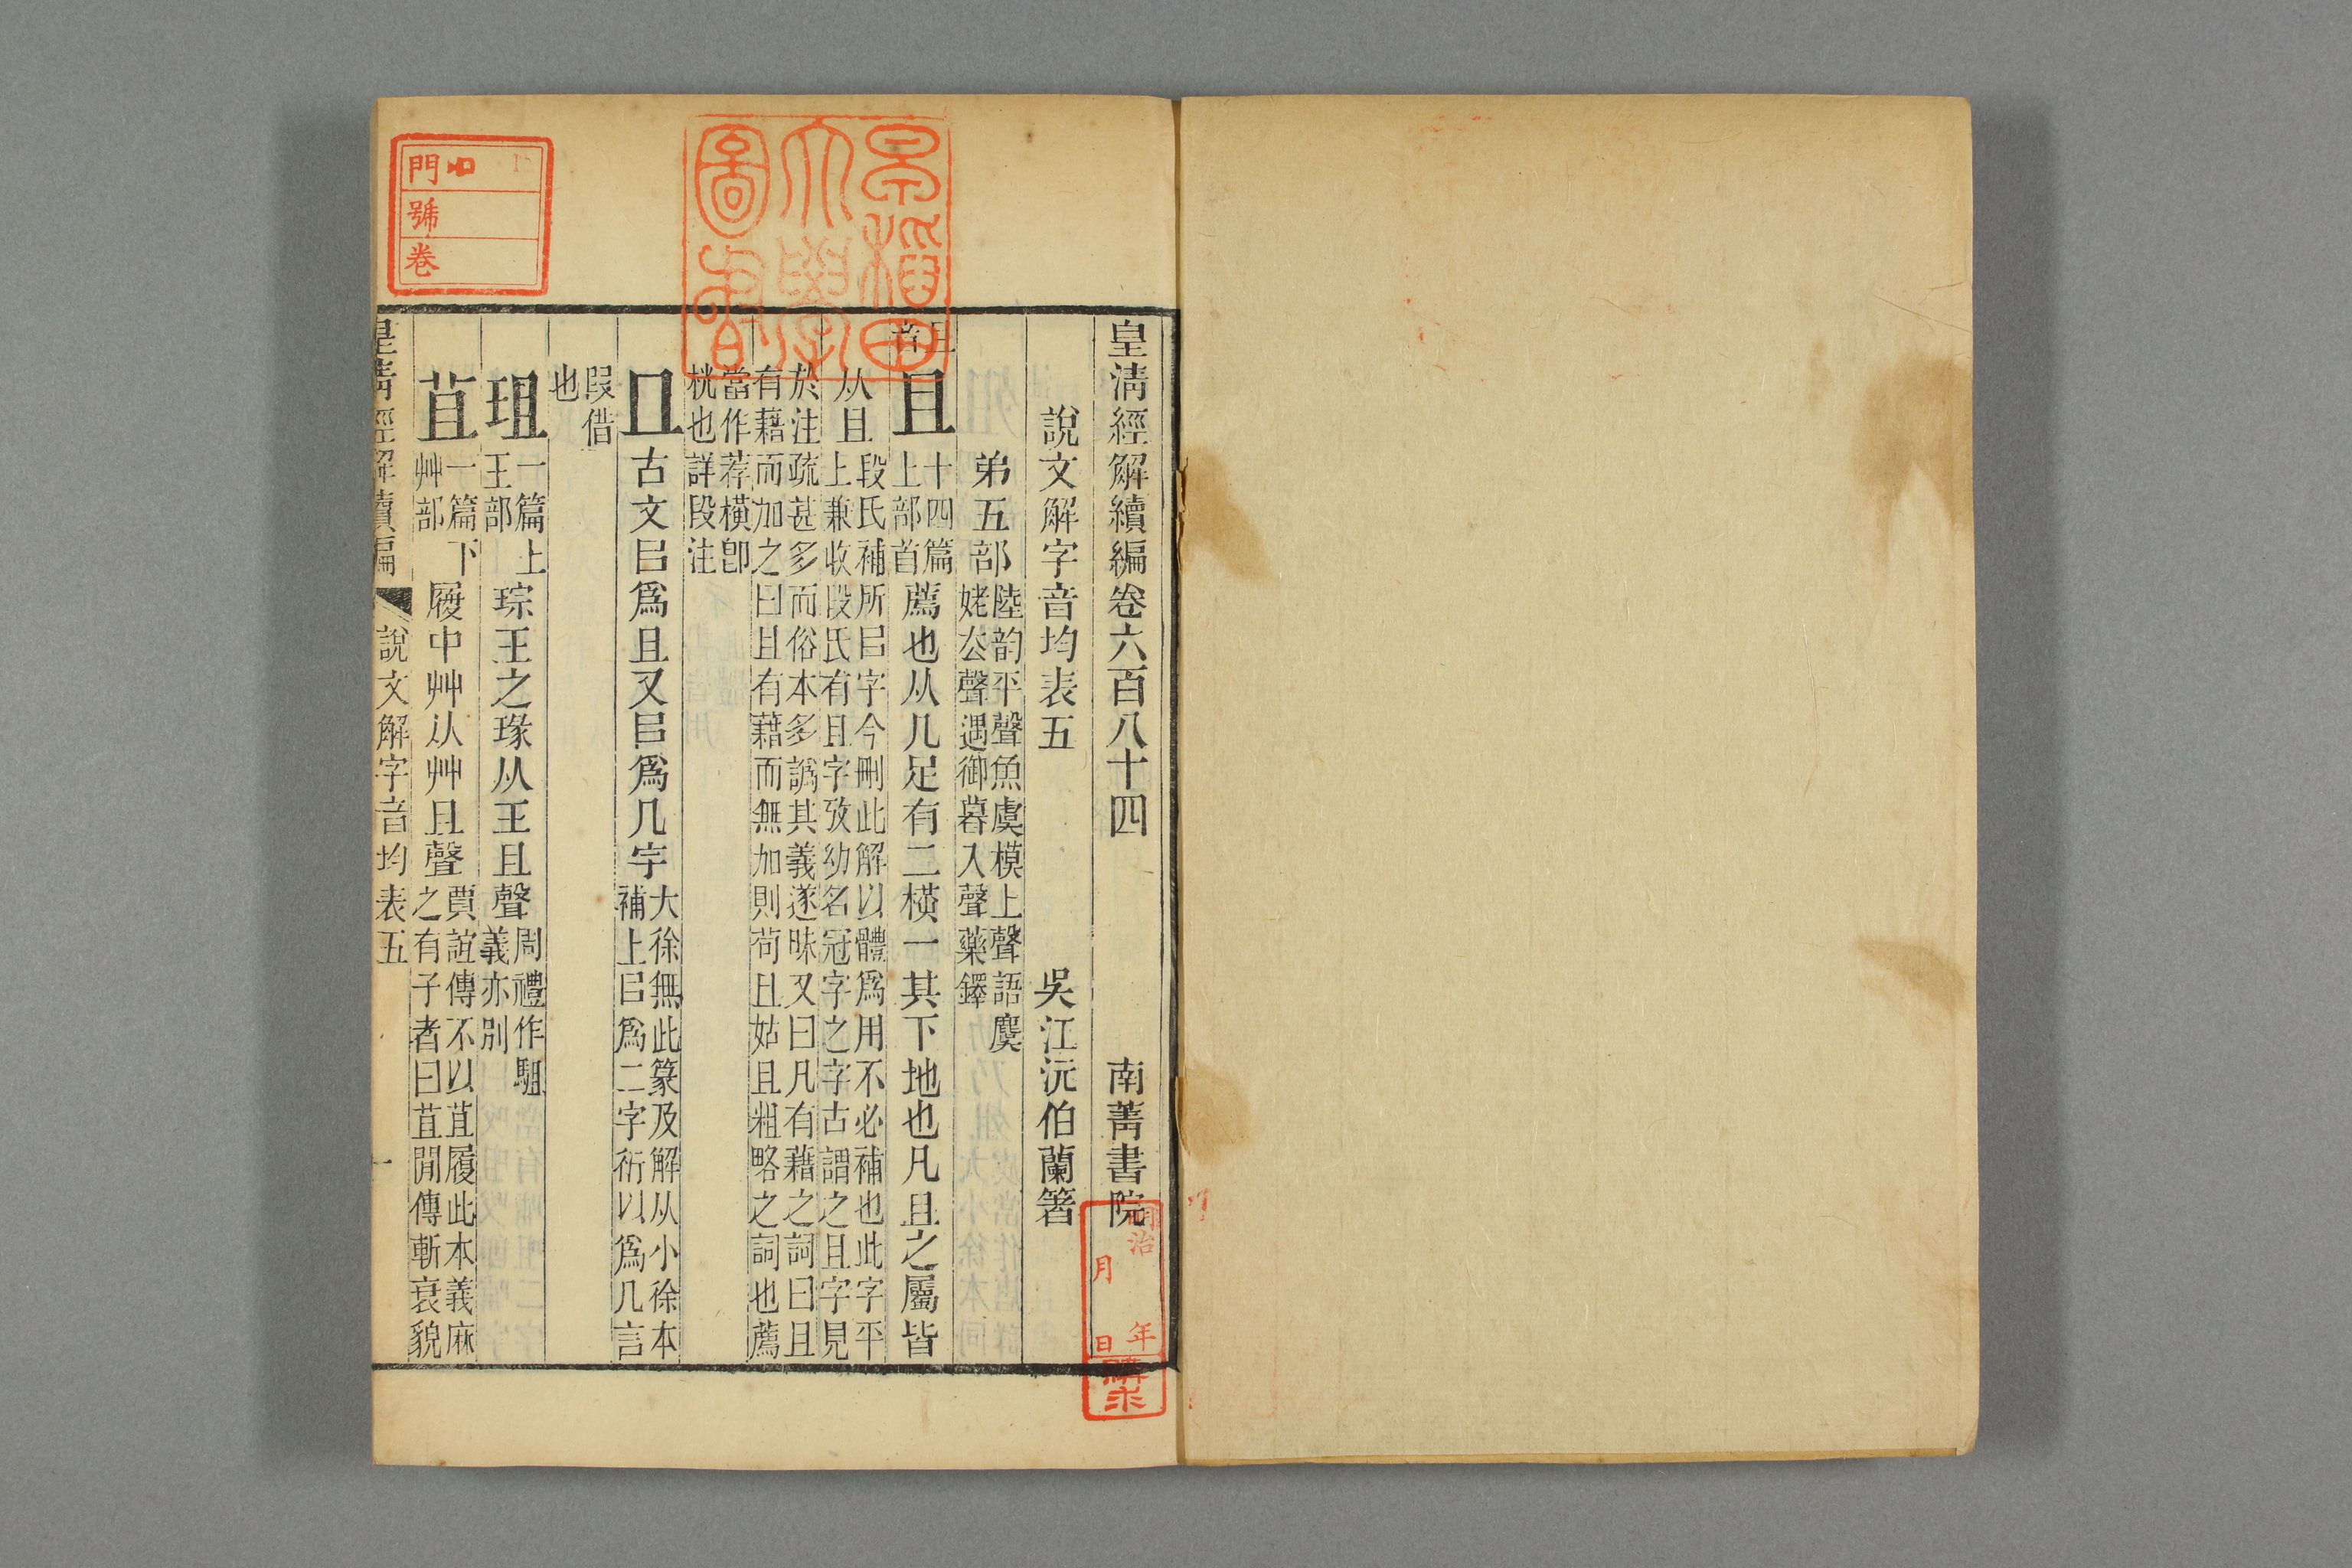 皇清經解續編卷六百八十四 南菁書院
說文解字音均表五 吳江沅伯蘭箸
弟五部 陸韵平聲魚虞模上聲語麌
姥去聲遇御暮入聲藥鐸
且 十四篇
上部首 薦也从几足有二橫一其下地也凡且之屬皆
从且 段氏補所㠯字今刪此解以體爲用不必補也此字平
上兼收段氏有且字攷幼名冠字之字古謂之且字見
於注疏甚多而俗本多譌其義遂昧又曰凡有藉之詞曰且
有藉而加之曰且有藉而無加則苟且姑且粗略之詞也薦
當作荐橫卽
桄也詳段注
古文㠯爲且又㠯爲几字 大徐無此篆及解从小徐本
補上㠯爲二字衍以爲几言
叚借
也
珇 一篇上
王部 琮玉之瑑从王且聲 周禮作駔
義亦別
苴 一篇下
艸部 履中艸从艸且聲 賈誼傳不以苴履此本義麻
之有子者曰苴閒傳斬衰貌
皇清經解續編 說文解字音均表五 一
門
號
卷
早稻田
大學
圖書
明治 年
月 日
購求